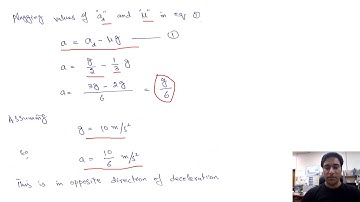 Plugging values of "ad" and "μ" in eq ①
a = ad - μg ——— ①
a = g/2 - 1/3 g
a = 3g - 2g / 6 = g/6
Assuming
g = 10 m/s²
so,
a = 10/6 m/s²
This is in opposite direction of deceleration